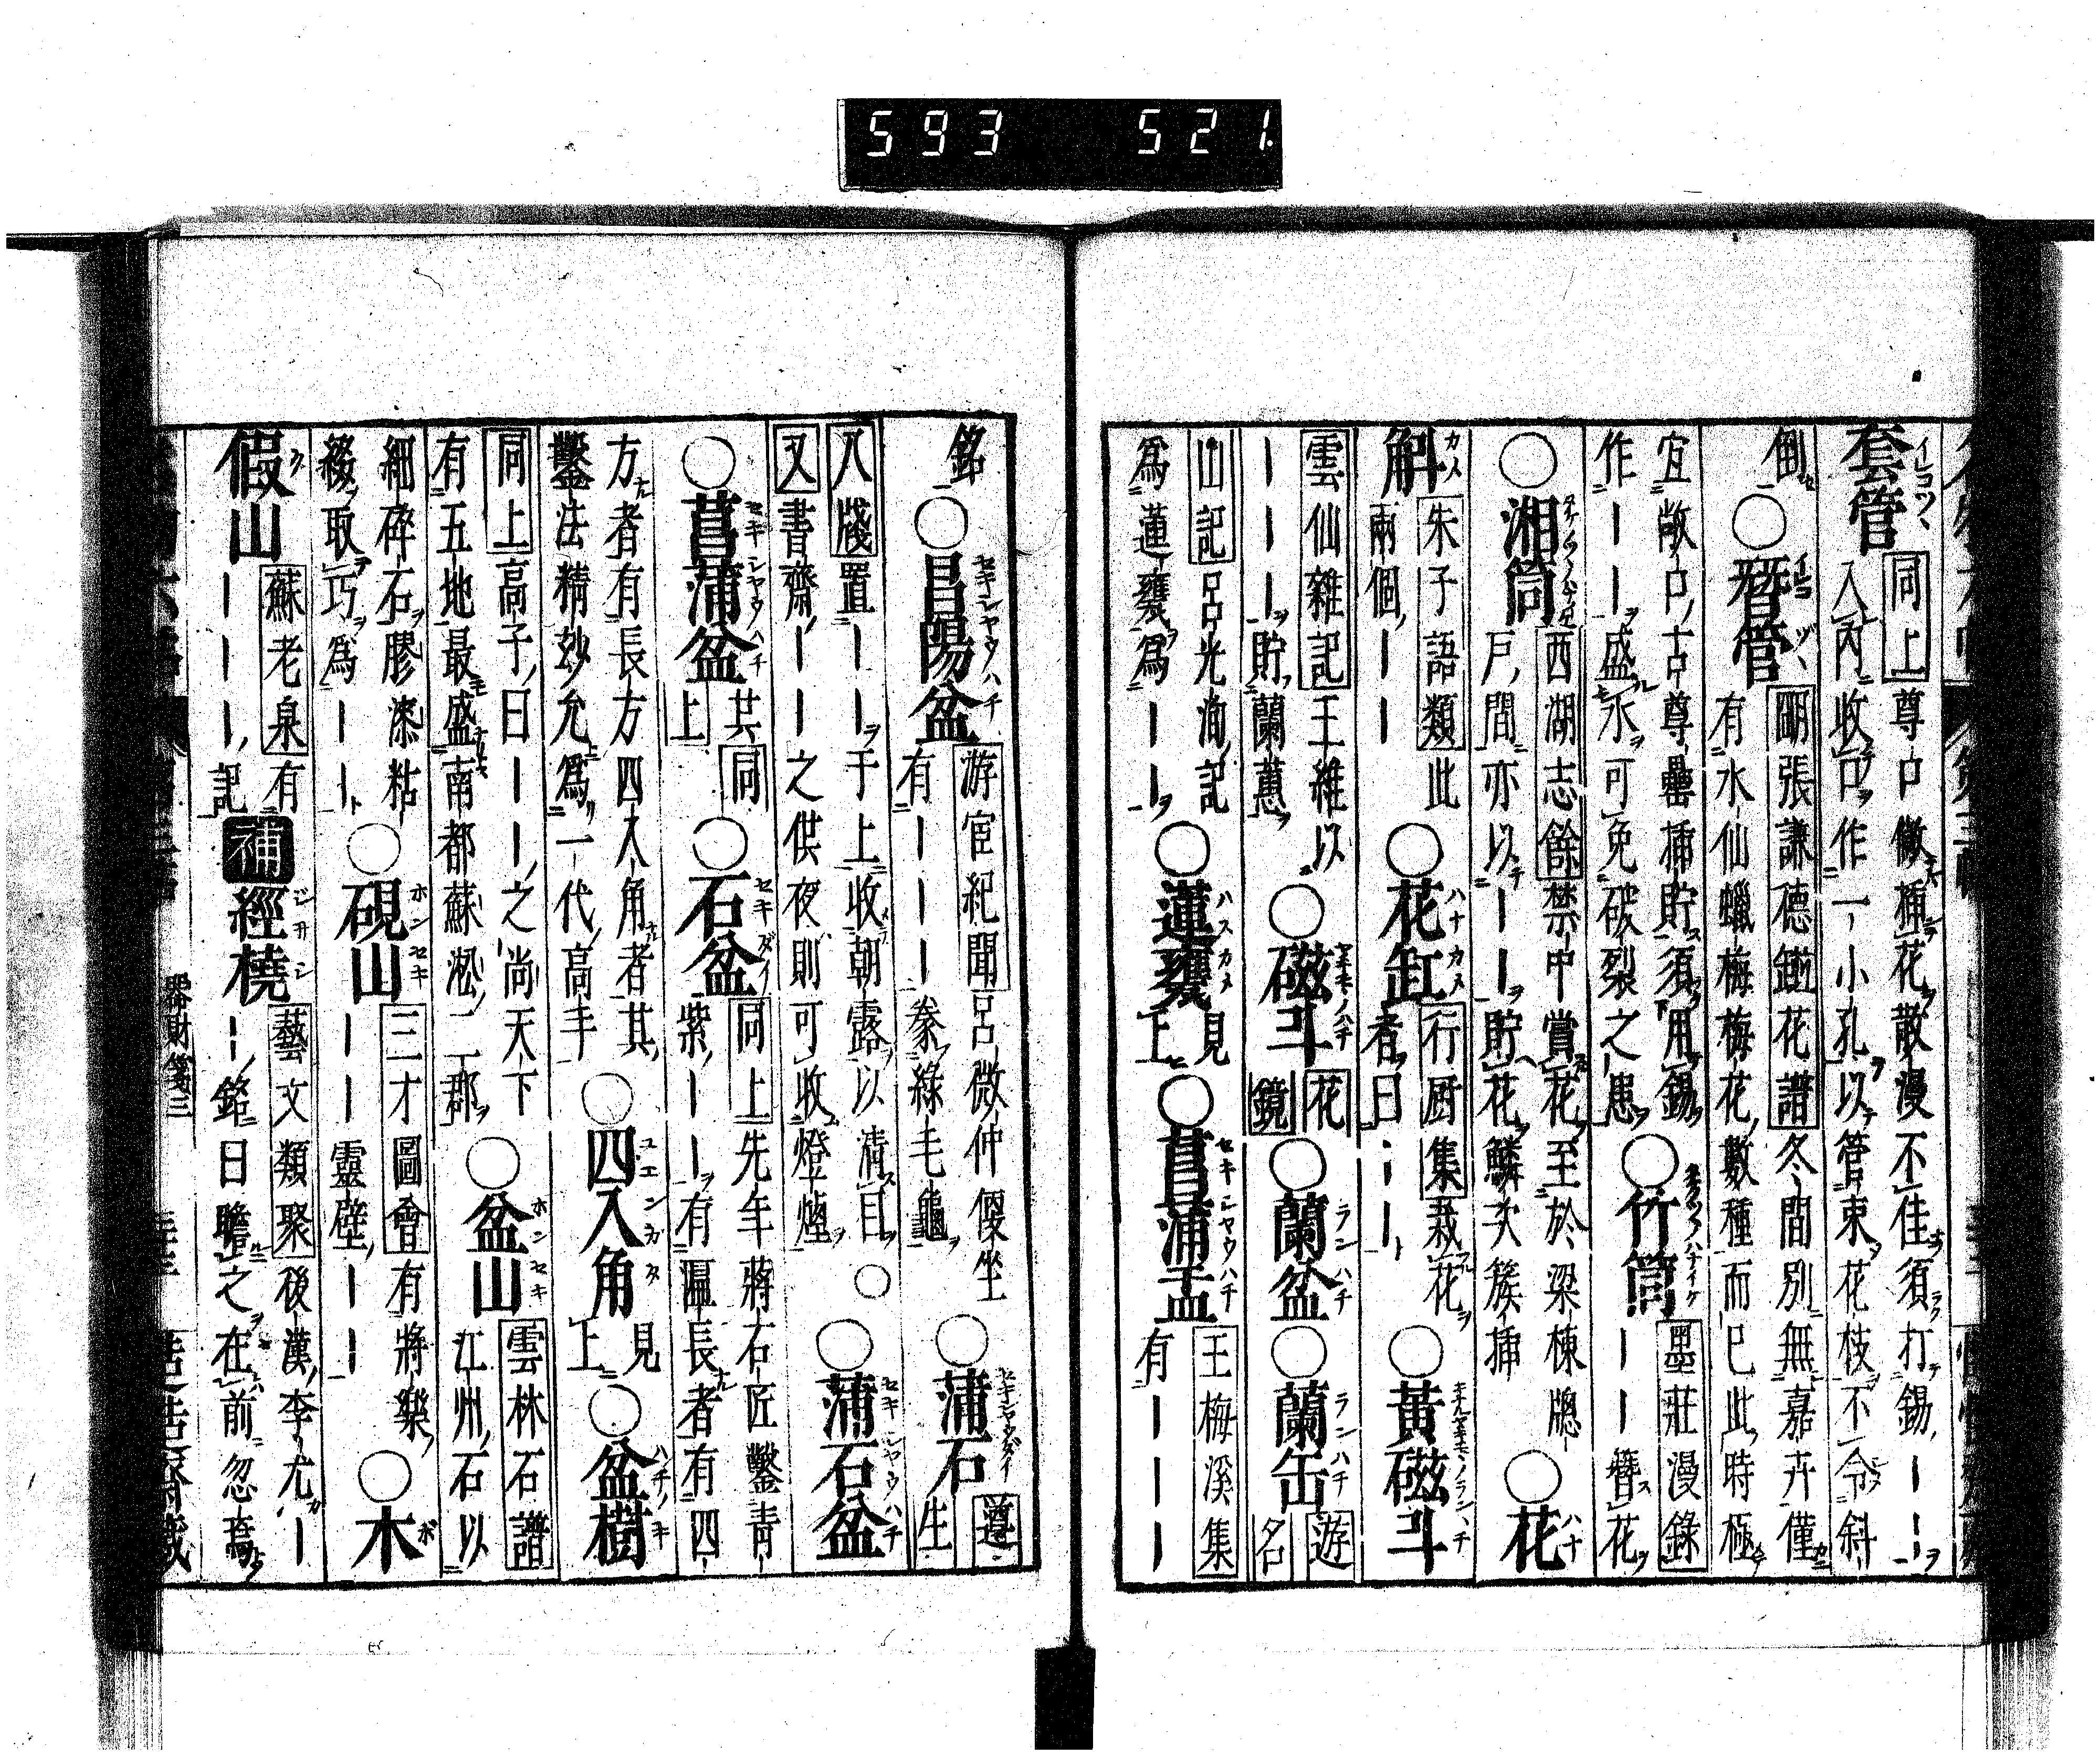 593 521
套管 同上 尊口微 揷花散漫不佳須打錫――
入內收口作一小孔以管束花枝不令斜
倒 ○暦管 張謙德缾花譜 冬間別無嘉卉僅
有水仙蠟梅梅花數種而已此時極
宜敞口古尊罍揷貯須用錫
作――盛水可免破裂之患 ○竹筒 墨莊漫錄
――簪花
○湘筒 西湖志餘 禁中賞花至於梁棟牕
戶間亦以――貯花鱗次簇揷 ○花
斛 朱子語類 此
兩個―― ○花缸 行厨集 栽花
者曰―― ○黃磁斗
雲仙雜記 王維以
―――貯蘭蕙 ○磁斗 花鏡 ○蘭盆 ○蘭缶 遊名
山記 呂光洵記
爲蓮甕爲―― ○蓮甕 見上 ○菖蒲盂 王梅溪集
有―――
銘 ○昌陽盆 游宦紀聞 呂微仲
有―――豢綠毛龜 ○蒲石 遵生
八牋 置――于上收朝露以清目
又 書齋――之供夜則可收燈煙 ○蒲石盆
○菖蒲盆 其同上 ○石盆 同上 先年蔣石匠鑿青
紫――有溫長者有四
方者有長方四入角者其
鑿法精玅允爲一代高手 ○四入角 見上 ○盆樹
同上 高子曰――之尚天下
有五地最盛南都蘇淞二郡 ○盆山 雲林石譜
江州石以
細碎石膠漆粘
綴取巧爲―― ○硯山 三才圖會 有將樂
――靈壁―― ○木
假山 蘇老泉 有
―――記 補 經橈 藝文類聚 後漢李尤―
―銘曰瞻之在前忽焉
器財箋三